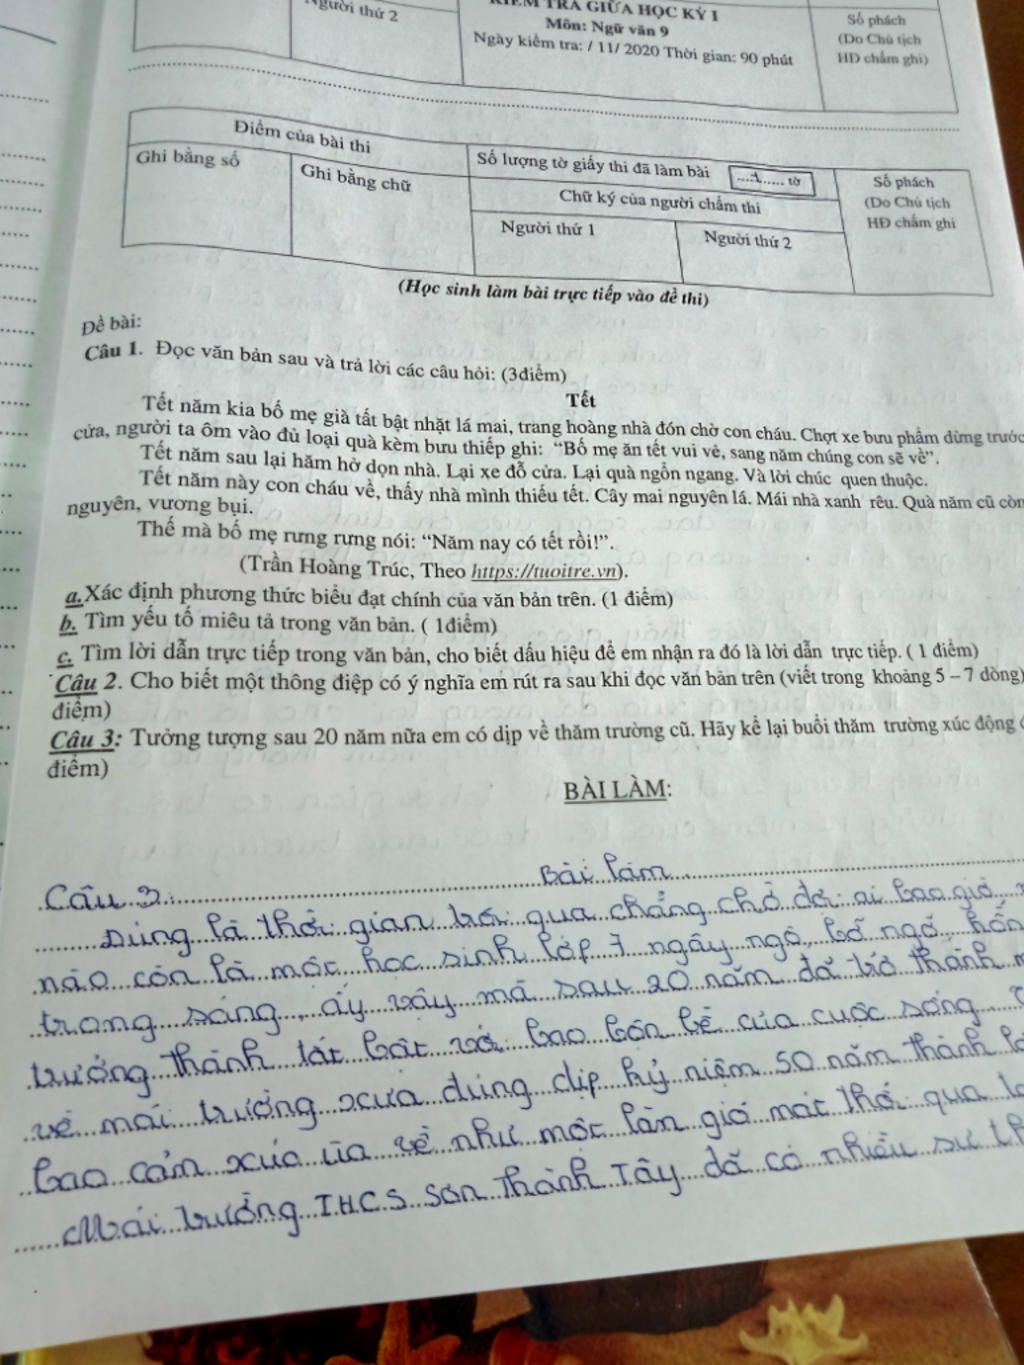 Người thứ 2
KIỂM TRA GIỮA HỌC KỲ I
Môn: Ngữ văn 9
Ngày kiểm tra: / 11/ 2020 Thời gian: 90 phút
Số phách
(Do Chủ tịch
HĐ chấm ghi)
Điểm của bài thi
Ghi bằng số
Ghi bằng chữ
Số lượng tờ giấy thi đã làm bài
....1...... tờ
Chữ ký của người chấm thi
Người thứ 1
Người thứ 2
Số phách
(Do Chủ tịch
HĐ chấm ghi
(Học sinh làm bài trực tiếp vào đề thi)
Đề bài:
Câu 1. Đọc văn bản sau và trả lời các câu hỏi: (3điểm)
Tết
Tết năm kia bố mẹ già tất bật nhặt lá mai, trang hoàng nhà đón chờ con cháu. Chợt xe bưu phẩm dừng trước
cửa, người ta ôm vào đủ loại quà kèm bưu thiếp ghi: “Bố mẹ ăn tết vui vẻ, sang năm chúng con sẽ về”.
Tết năm sau lại hăm hở dọn nhà. Lại xe đỗ cửa. Lại quà ngổn ngang. Và lời chúc quen thuộc.
Tết năm này con cháu về, thấy nhà mình thiếu tết. Cây mai nguyên lá. Mái nhà xanh rêu. Quà năm cũ còn
nguyên, vương bụi.
Thế mà bố mẹ rưng rưng nói: “Năm nay có tết rồi!”.
(Trần Hoàng Trúc, Theo https://tuoitre.vn).
a.Xác định phương thức biểu đạt chính của văn bản trên. (1 điểm)
b. Tìm yếu tố miêu tả trong văn bản. ( 1điểm)
c. Tìm lời dẫn trực tiếp trong văn bản, cho biết dấu hiệu để em nhận ra đó là lời dẫn trực tiếp. ( 1 điểm)
Câu 2. Cho biết một thông điệp có ý nghĩa em rút ra sau khi đọc văn bản trên (viết trong khoảng 5 – 7 dòng)
điểm)
Câu 3: Tưởng tượng sau 20 năm nữa em có dịp về thăm trường cũ. Hãy kể lại buổi thăm trường xúc động
điểm)
BÀI LÀM:
Bài làm
Câu 3:
Đúng là thời gian trôi qua chẳng chờ đợi ai bao giờ
nào còn là một học sinh lớp 7 ngây ngô, bỡ ngỡ, hồn
trong sáng, ấy vậy mà sau 20 năm đã trở thành
trưởng thành tất bật với bao bộn bề của cuộc sống
về mái trường xưa đúng dịp kỷ niệm 50 năm thành
bao cảm xúc ùa về như một làn gió mát thổi qua
Mái trường T.H.C.S Sơn Thành Tây đã có nhiều sự